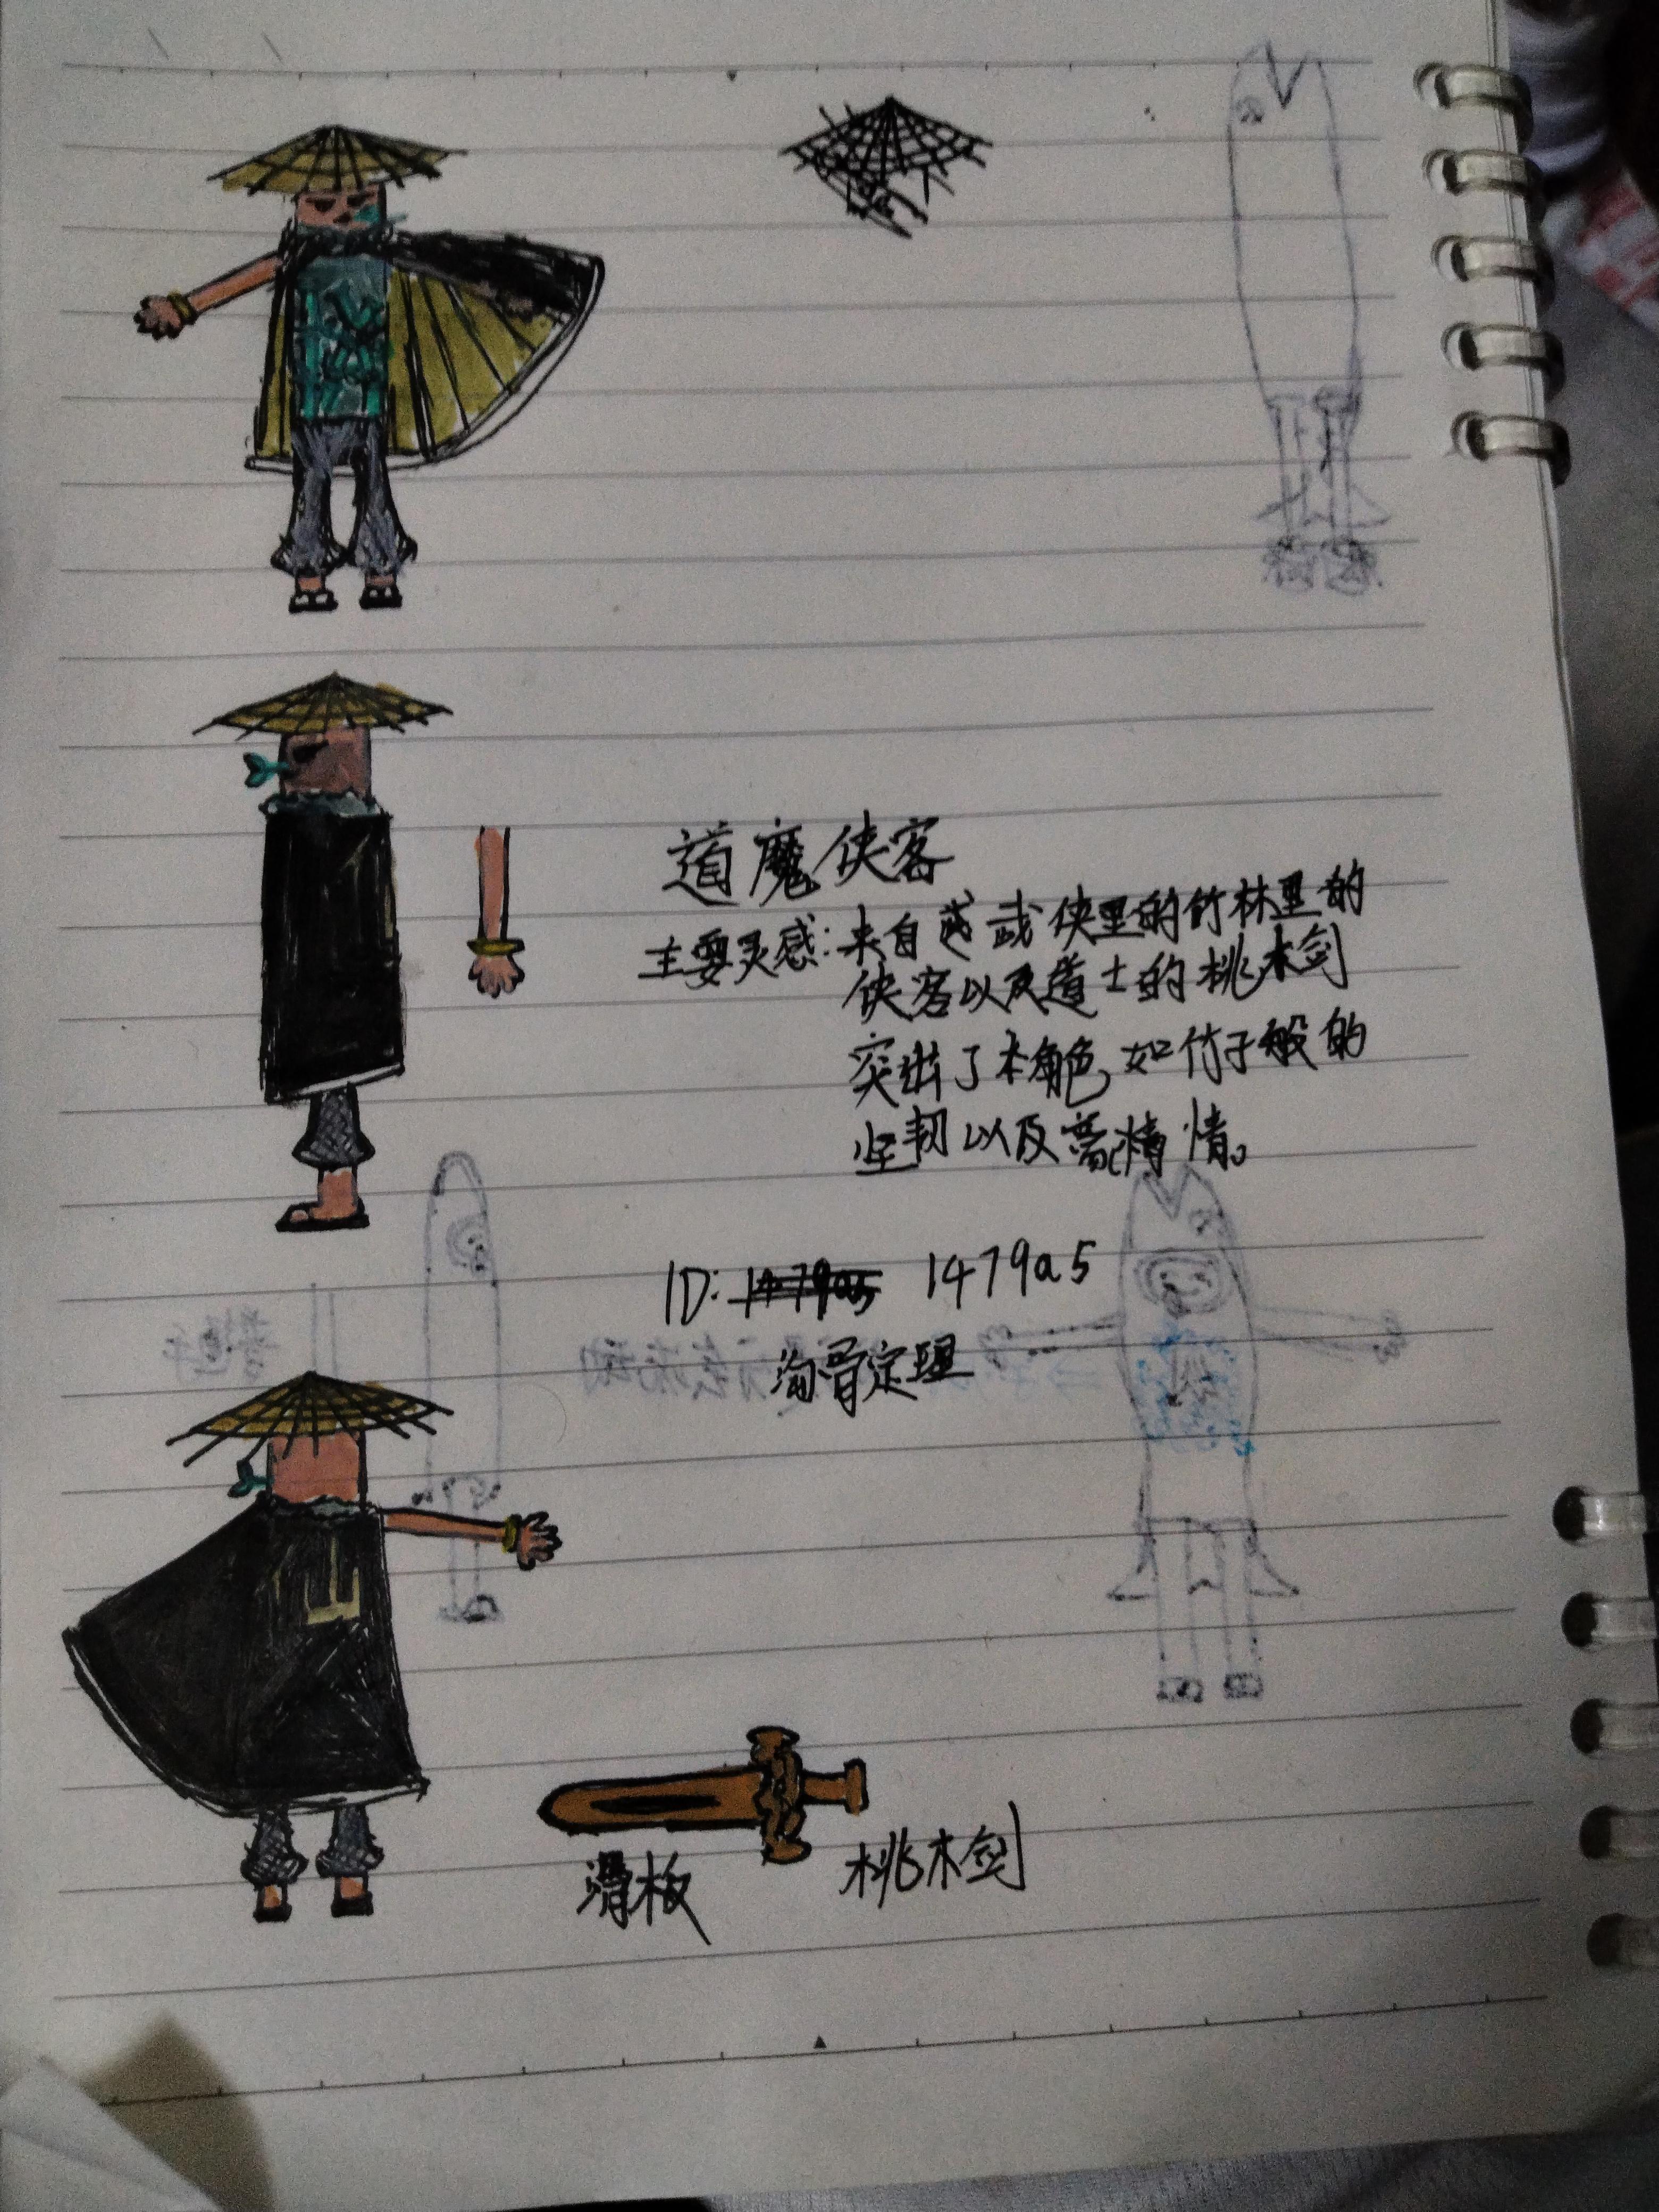 道魔侠客
主要灵感:来自武侠里的竹林里的
侠客以及道士的桃木剑
突出了本角色如竹子般的
坚韧以及豪情。
ID: 1479a5
淘骨定理
滑板
桃木剑